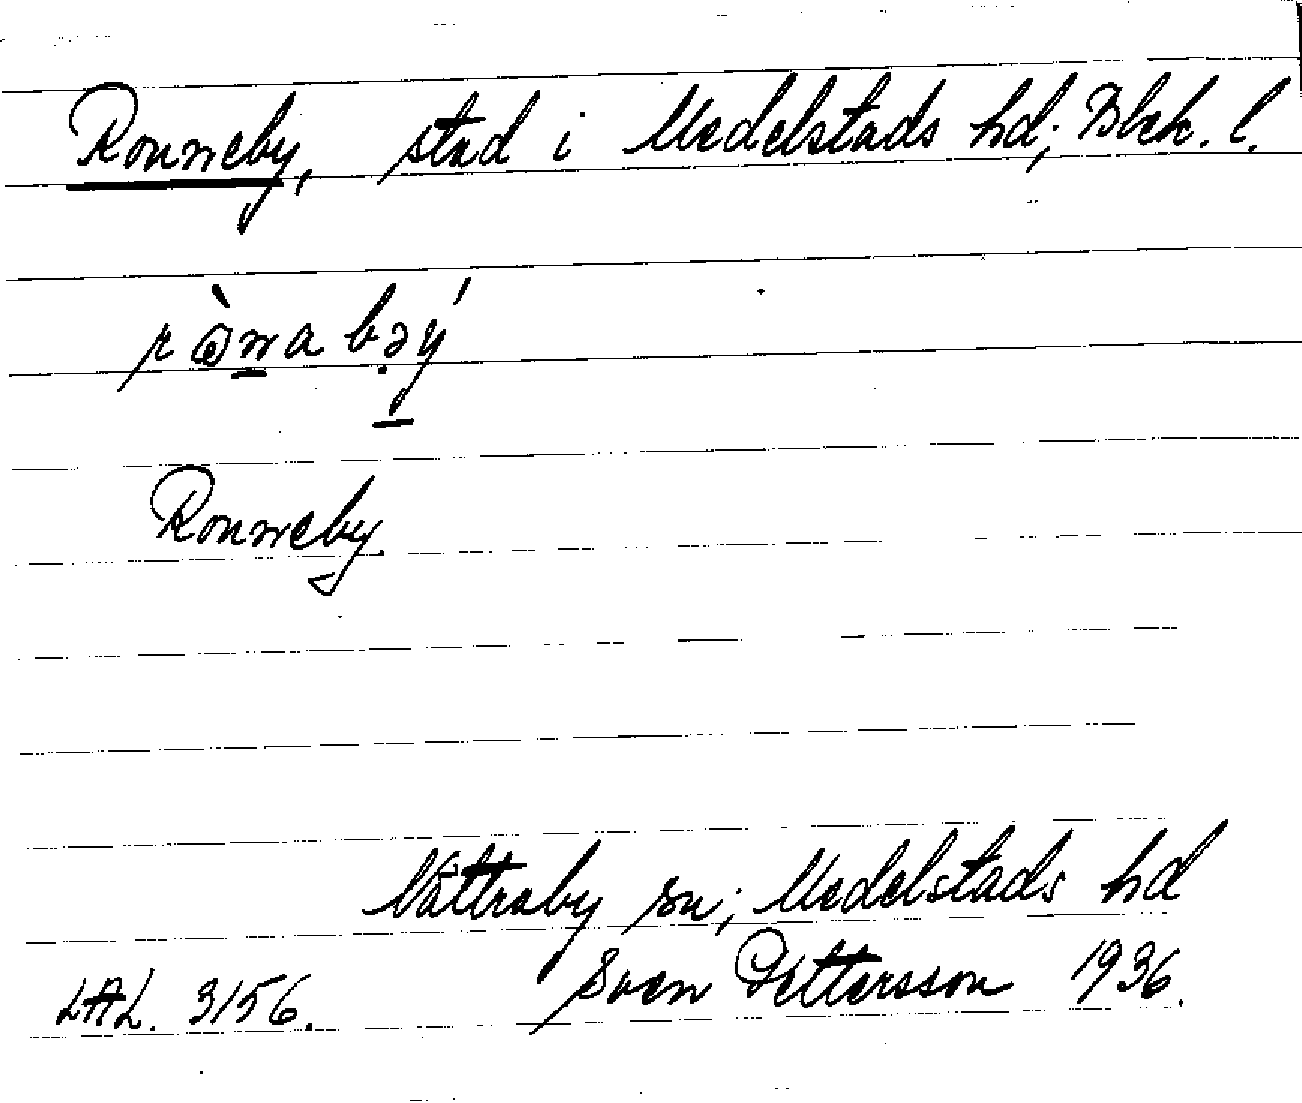 Ronneby, stad i Medelstads hd; Blek. l.
Ronneby
Nättraby sn; Medelstads hd
LAL. 3156. Sven Pettersson 1936.